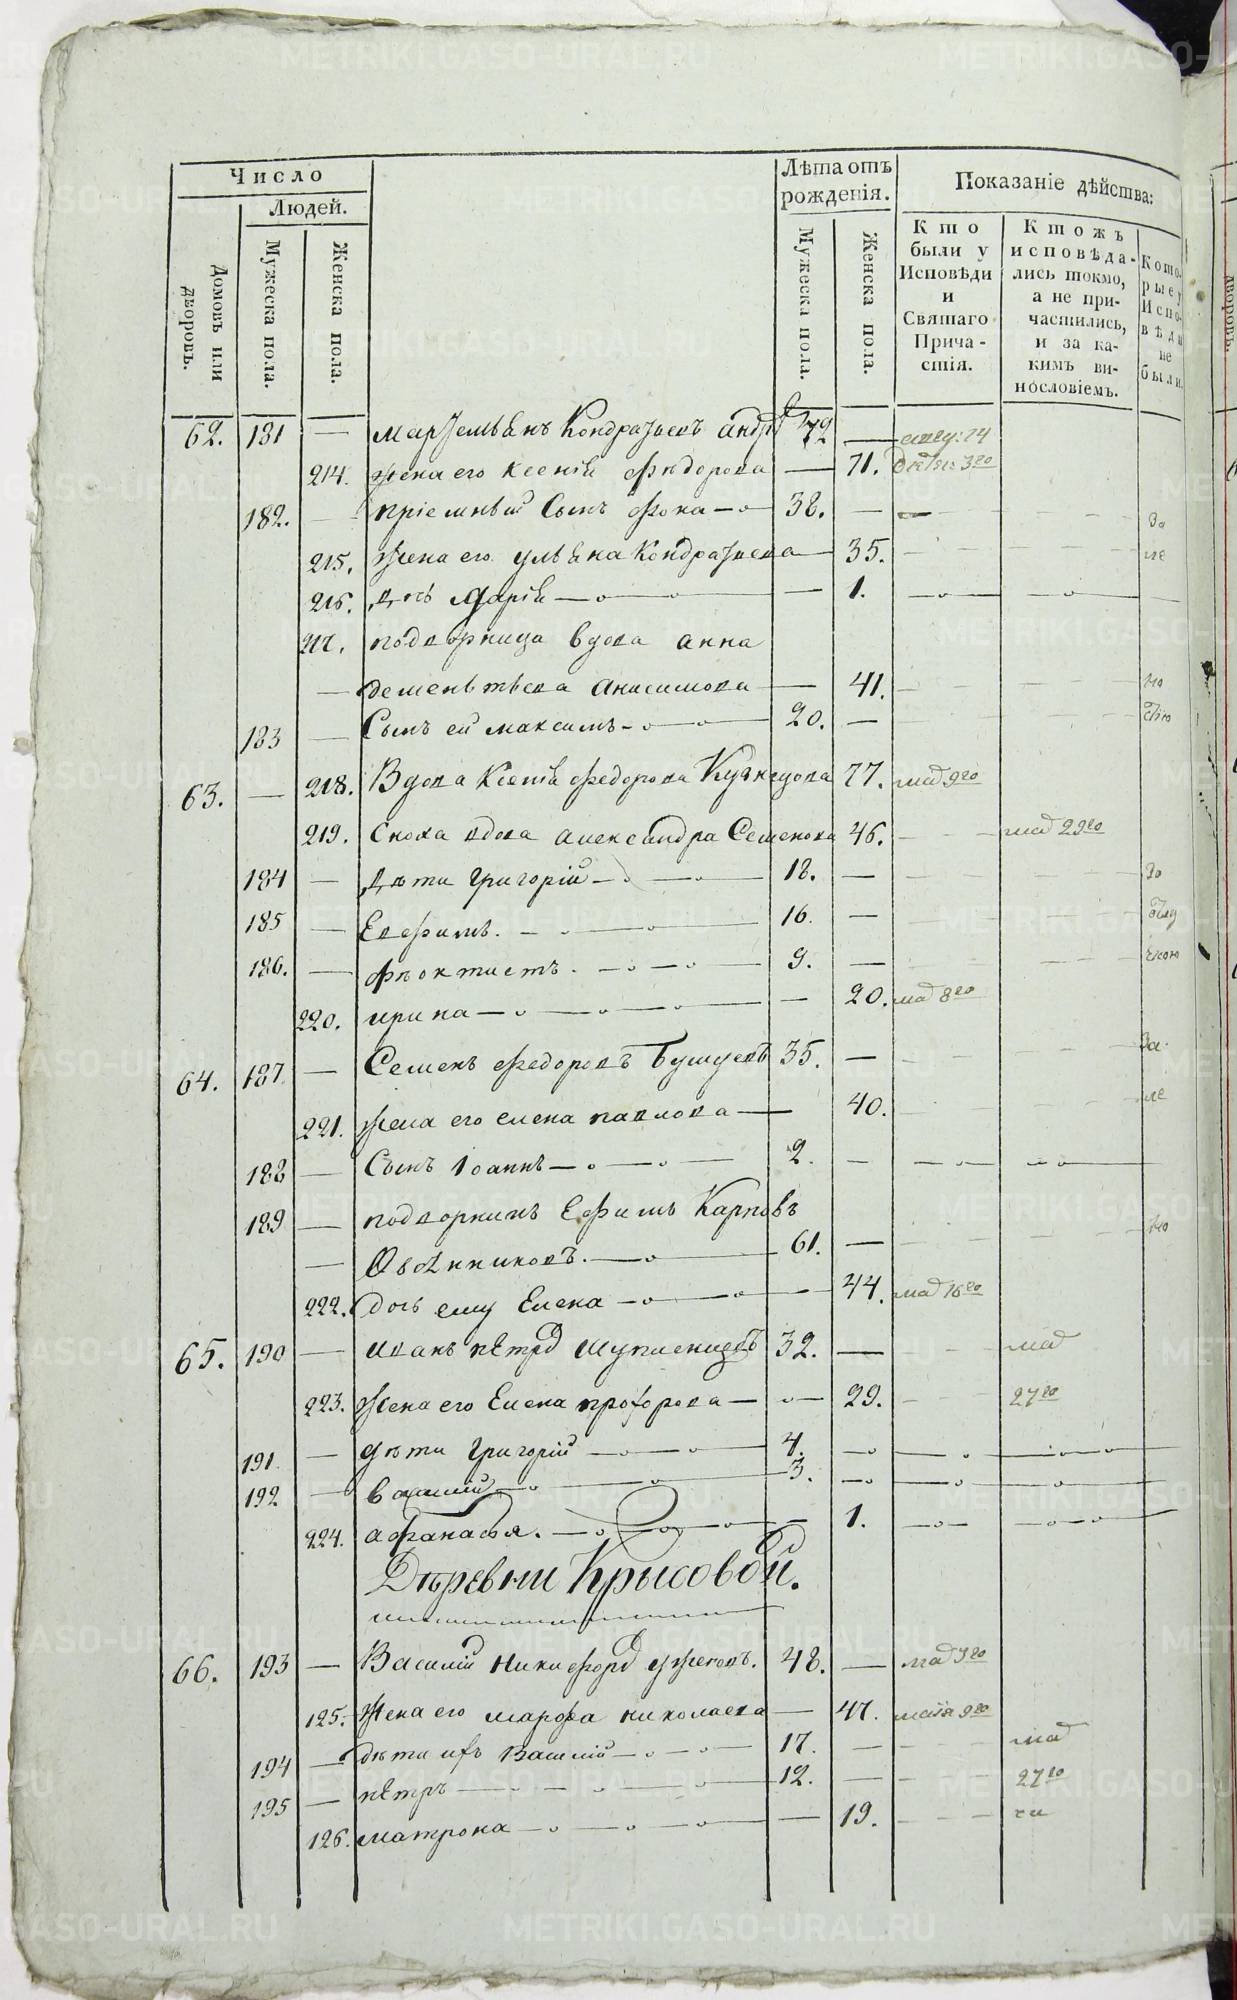 Число
Людей.
Домовъ или дворовъ.
Мужеска пола.
Женска пола.
Лѣта отъ рожденія.
Мужеска пола.
Женска пола.
Показаніе дѣйства:
Кто были у Исповѣди и Святаго Причастія.
Ктожъ исповѣдались токмо, а не причастились, и за какимъ винословіемъ.
Которые у Исповѣди не были.
62. 181 — Мартемьянъ Кондратьевъ Андр 72 —
214. жена его Ксенія Фѣдорова — 71.
182. — пріемный Сынъ Фока 38. — За
215. Жена его Ульяна Кондратьева — 35. — — ле
216. дочь Марія — 1. — —
217. подворница вдова анна
— дементьева Анисимова — 41. — — но
183 — Сынъ ей максимъ 20. — — стію
63. — 218. Вдова Ксенія Федорова Кузнецова 77. маӏ 9го
219. Сноха вдова александра Семенова 46. — маӏ 29го
184 — дѣти Григорій 18. — За
185 — Евфимъ. 16. —
186. — Фѣоктистъ. 9. —
220. ирина — 20. маӏ 8го
64. 187. — Семенъ Федоровъ Бушуевъ 35. — За
221. жена его елена павлова — 40. — — ле
188 — Сынъ Іоаннъ 2. — — —
189 — подворникъ Ефимъ Карповъ
— Овсянниковъ. 61. — — — но
222. дочь ему Елена — 44. маӏ 16го
65. 190 — Иванъ пѣтрӏ Шупленцовъ 32. — маӏ
223. Жена его Елена прохорова — 29. — 27го
191 — дѣти Григорій 4. — — —
192 — василій 3. — — —
224. афанасья. — 1. — —
Дѣревни Крысовой.
66. 193 — Василій Никифорӏ ужеговъ. 48. — маӏ 9го
125. Жена его марфа николаева — 47. маія 9го
194 — дѣти ихъ Василій 17. — — маӏ
195 — пѣтръ 12. — — 27го
126. матрона — 19. —
METRIKI.GASO-URAL.RU